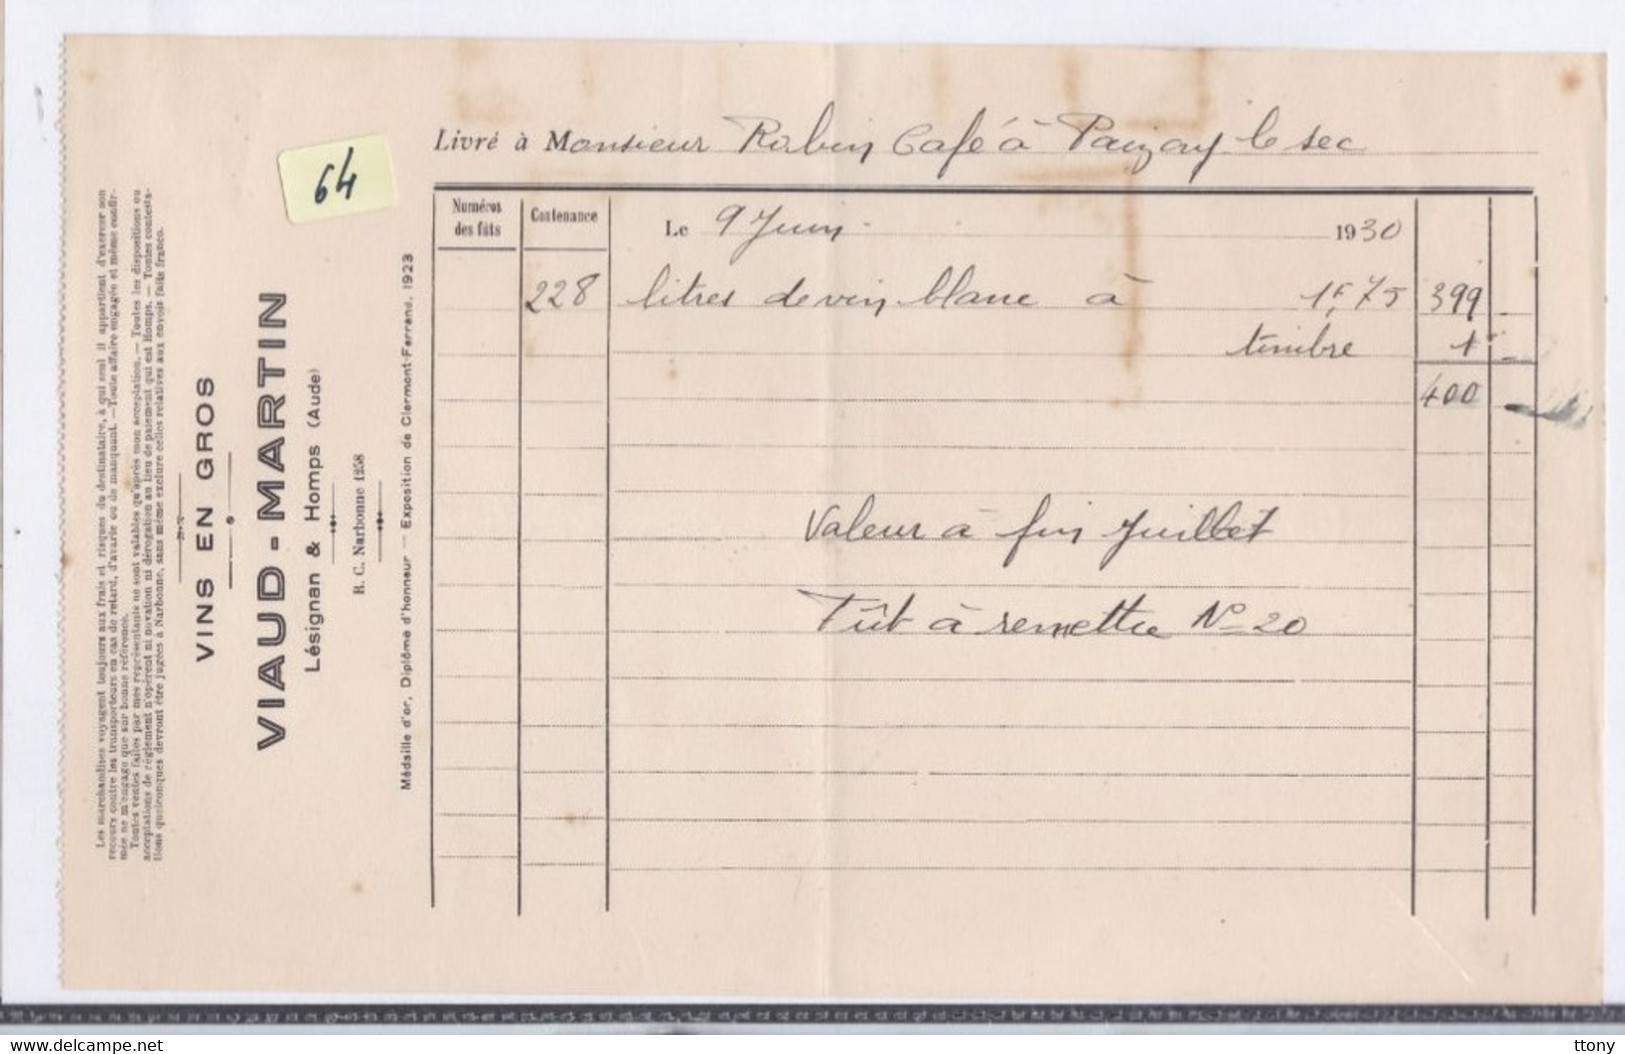 Les marchandises voyagent toujours aux frais et risques du destinataire, à qui seul il appartient d'exercer son
recours contre les transporteurs en cas de retard, d'avarie ou de manquant. — Toute affaire engagée et même confir-
mée ne m'engage que sur bonne référence.
Toutes ventes faites par mes représentants ne sont valables qu'après mon acceptation. — Toutes les dispositions ou
acceptations de règlement n'opèrent ni novation ni dérogation au lieu de paiement qui est Homps. — Toutes contesta-
tions quelconques devront être jugées à Narbonne, sans même exclure celles relatives aux envois faits franco.
VINS EN GROS
VIAUD-MARTIN
Lésignan & Homps (Aude)
R. C. Narbonne 1258
Médaille d'or, Diplôme d'honneur — Exposition de Clermont-Ferrand, 1923
64
Livré à Monsieur Robin Café à Paizay le sec
Numéros des fûts
Contenance
Le 9 Juin 1930
228 litres de vin blanc à 1f,75 399
timbre 1
400
Valeur à fin Juillet
Fût à remettre No 20
delcampe.net
ttony